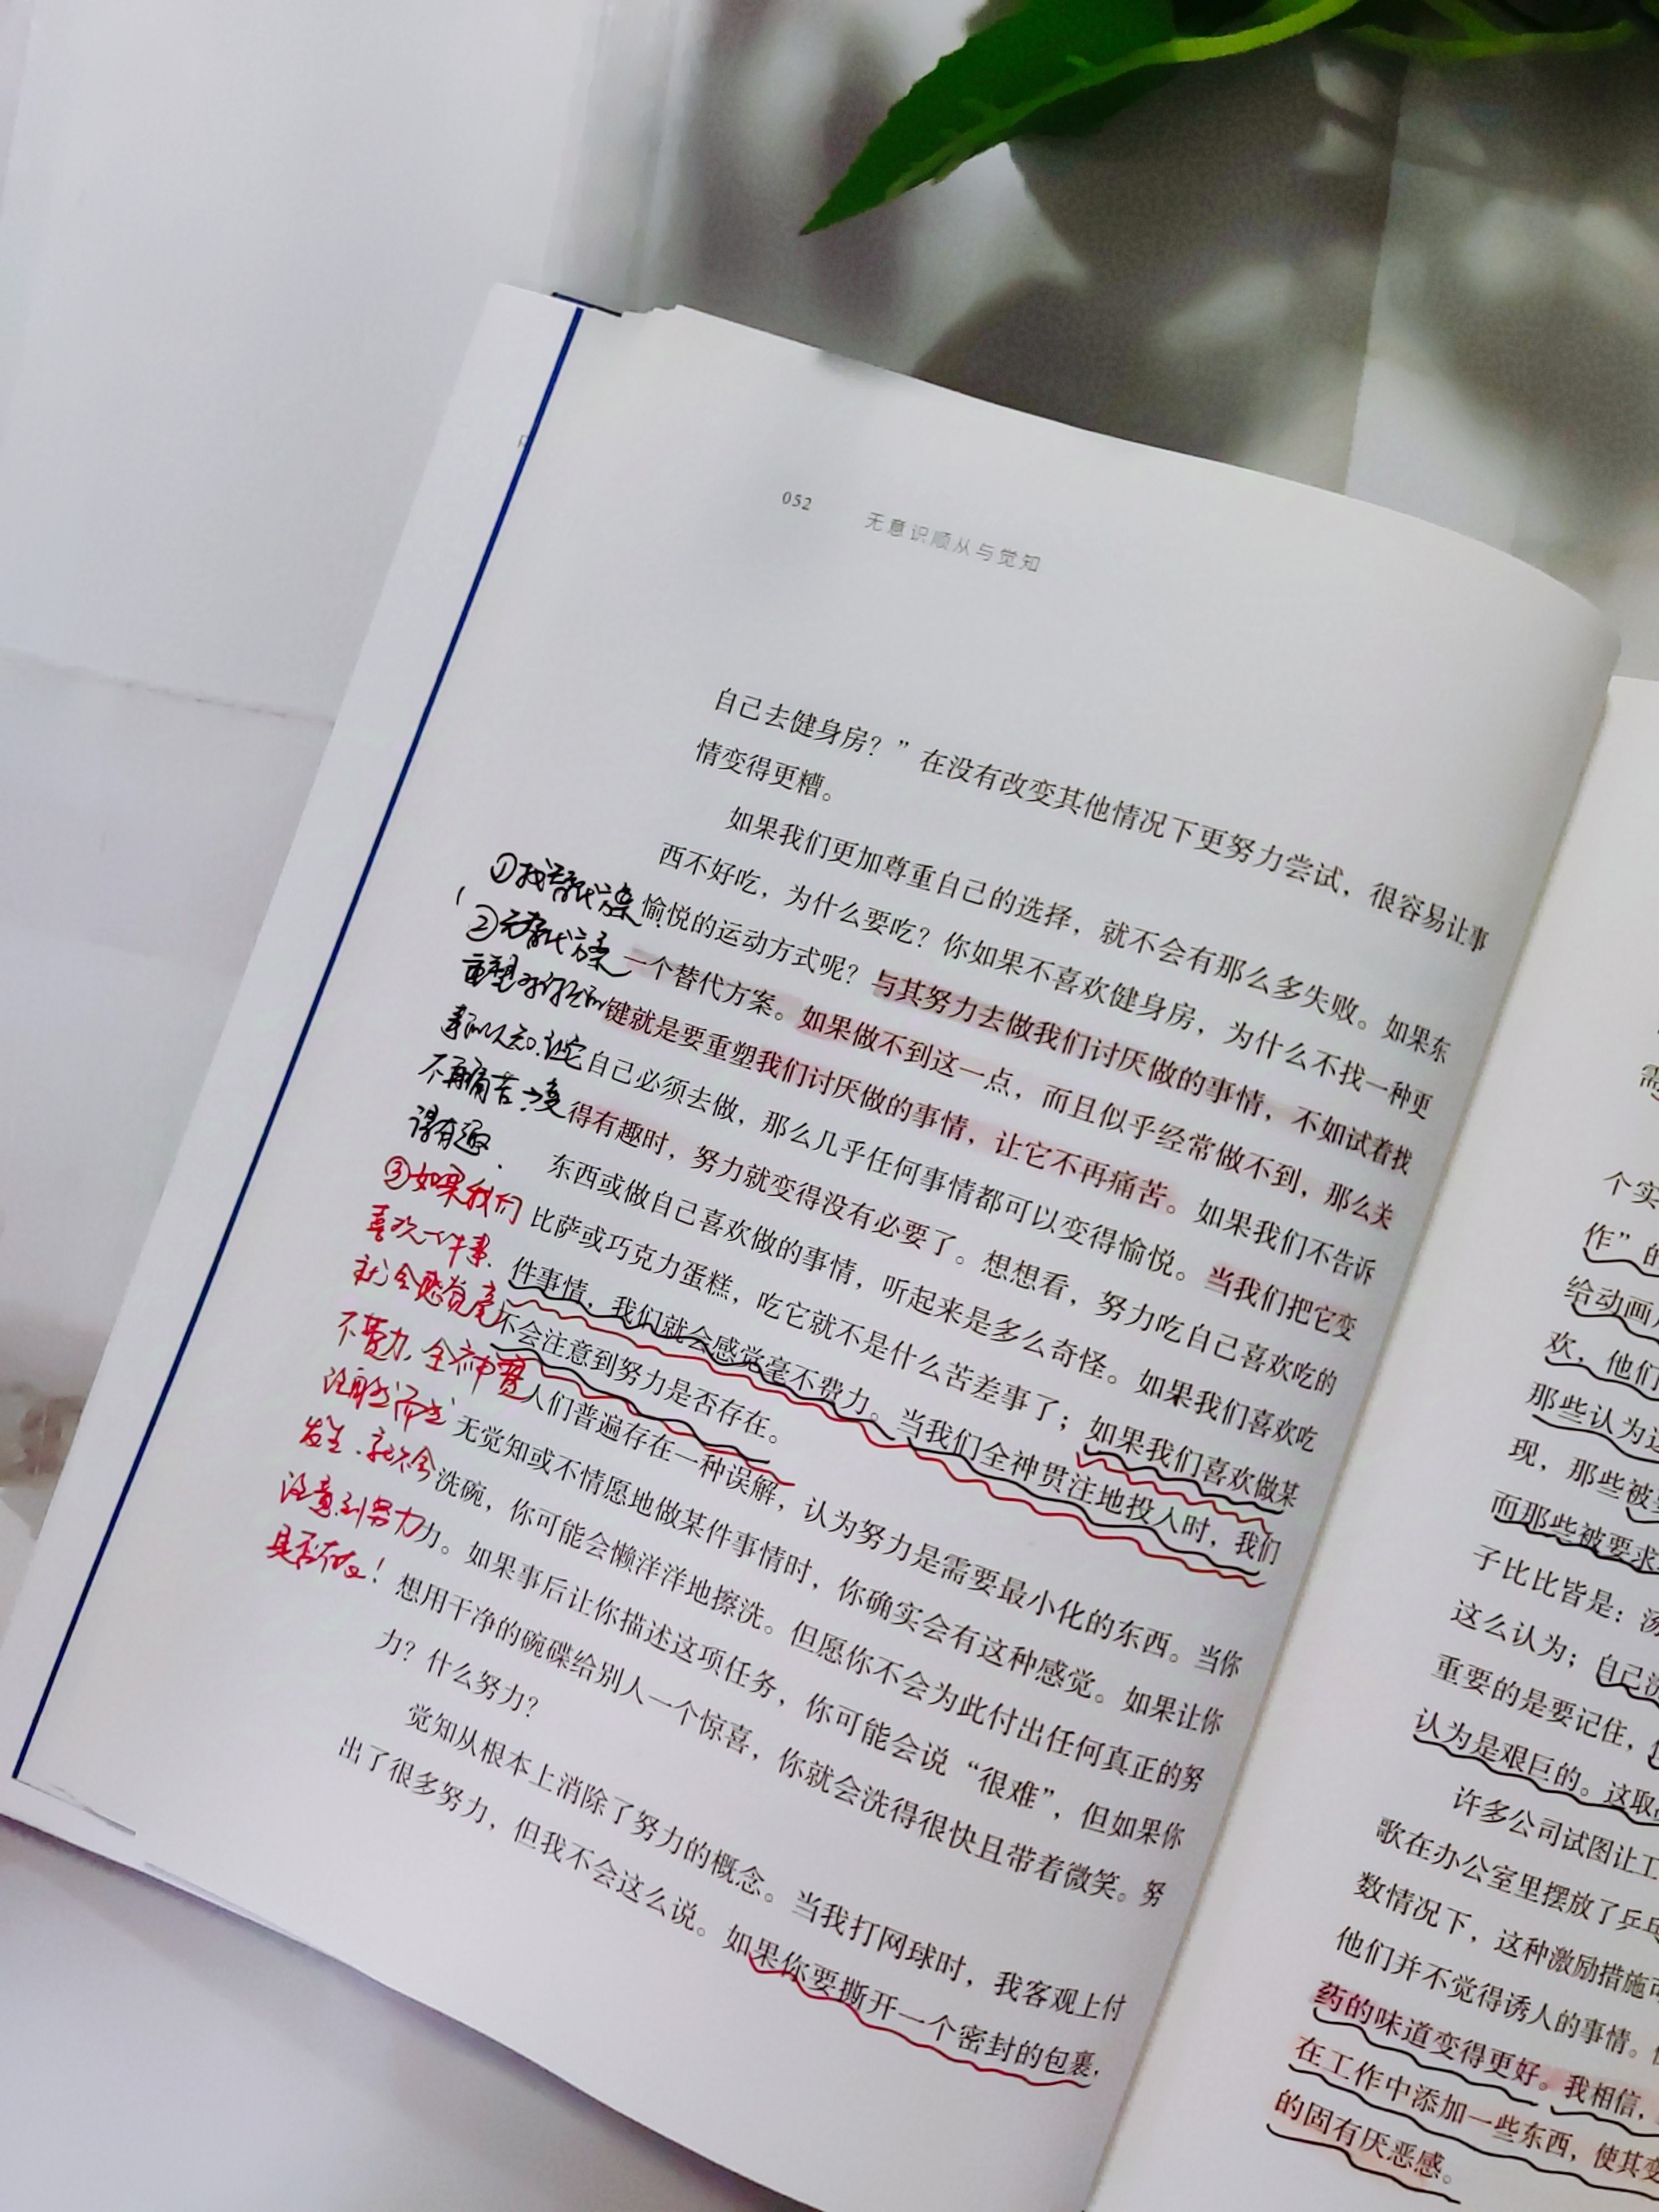 052 无意识顺从与觉知
自己去健身房？”在没有改变其他情况下更努力尝试，很容易让事
情变得更糟。
如果我们更加尊重自己的选择，就不会有那么多失败。如果东
西不好吃，为什么要吃？你如果不喜欢健身房，为什么不找一种更
愉悦的运动方式呢？与其努力去做我们讨厌做的事情，不如试着找
一个替代方案。如果做不到这一点，而且似乎经常做不到，那么关
键就是要重塑我们讨厌做的事情，让它不再痛苦。如果我们不告诉
自己必须去做，那么几乎任何事情都可以变得愉悦。当我们把它变
得有趣时，努力就变得没有必要了。想想看，努力吃自己喜欢吃的
东西或做自己喜欢做的事情，听起来是多么奇怪。如果我们喜欢吃
比萨或巧克力蛋糕，吃它就不是什么苦差事了；如果我们喜欢做某
件事情，我们就会感觉毫不费力。当我们全神贯注地投入时，我们
不会注意到努力是否存在。
人们普遍存在一种误解，认为努力是需要最小化的东西。当你
无觉知或不情愿地做某件事情时，你确实会有这种感觉。如果让你
洗碗，你可能会懒洋洋地擦洗。但愿你不会为此付出任何真正的努
力。如果事后让你描述这项任务，你可能会说“很难”，但如果你
想用干净的碗碟给别人一个惊喜，你就会洗得很快且带着微笑。努
力？什么努力？
觉知从根本上消除了努力的概念。当我打网球时，我客观上付
出了很多努力，但我不会这么说。如果你要撕开一个密封的包裹，
①找替代方案
②无替代方案
重塑
事的认知.让它
不再痛苦→变
得有趣.
③如果我们
喜欢一件事.
就会感觉毫
不费力,全神贯
注
发生.就不会
注意到努力
是否存在！
个实
作”的
给动画
欢，他们
那些认为
现，那些被
而那些被要求
子比比皆是：汤
这么认为；自己
重要的是要记住，
认为是艰巨的。这取
许多公司试图让工
歌在办公室里摆放了乒乓
数情况下，这种激励措施可
他们并不觉得诱人的事情。
药的味道变得更好。我相信，
在工作中添加一些东西，使其变
的固有厌恶感。